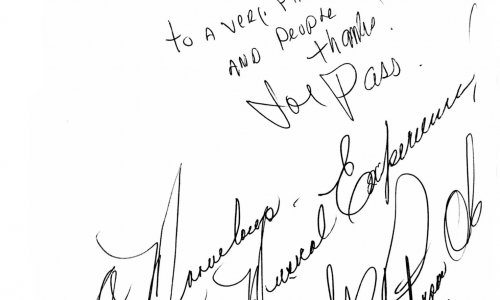 to A VERY
AND PEOPLE
thanks.
Joe Pass.
A Marvelous
Musical Experience,